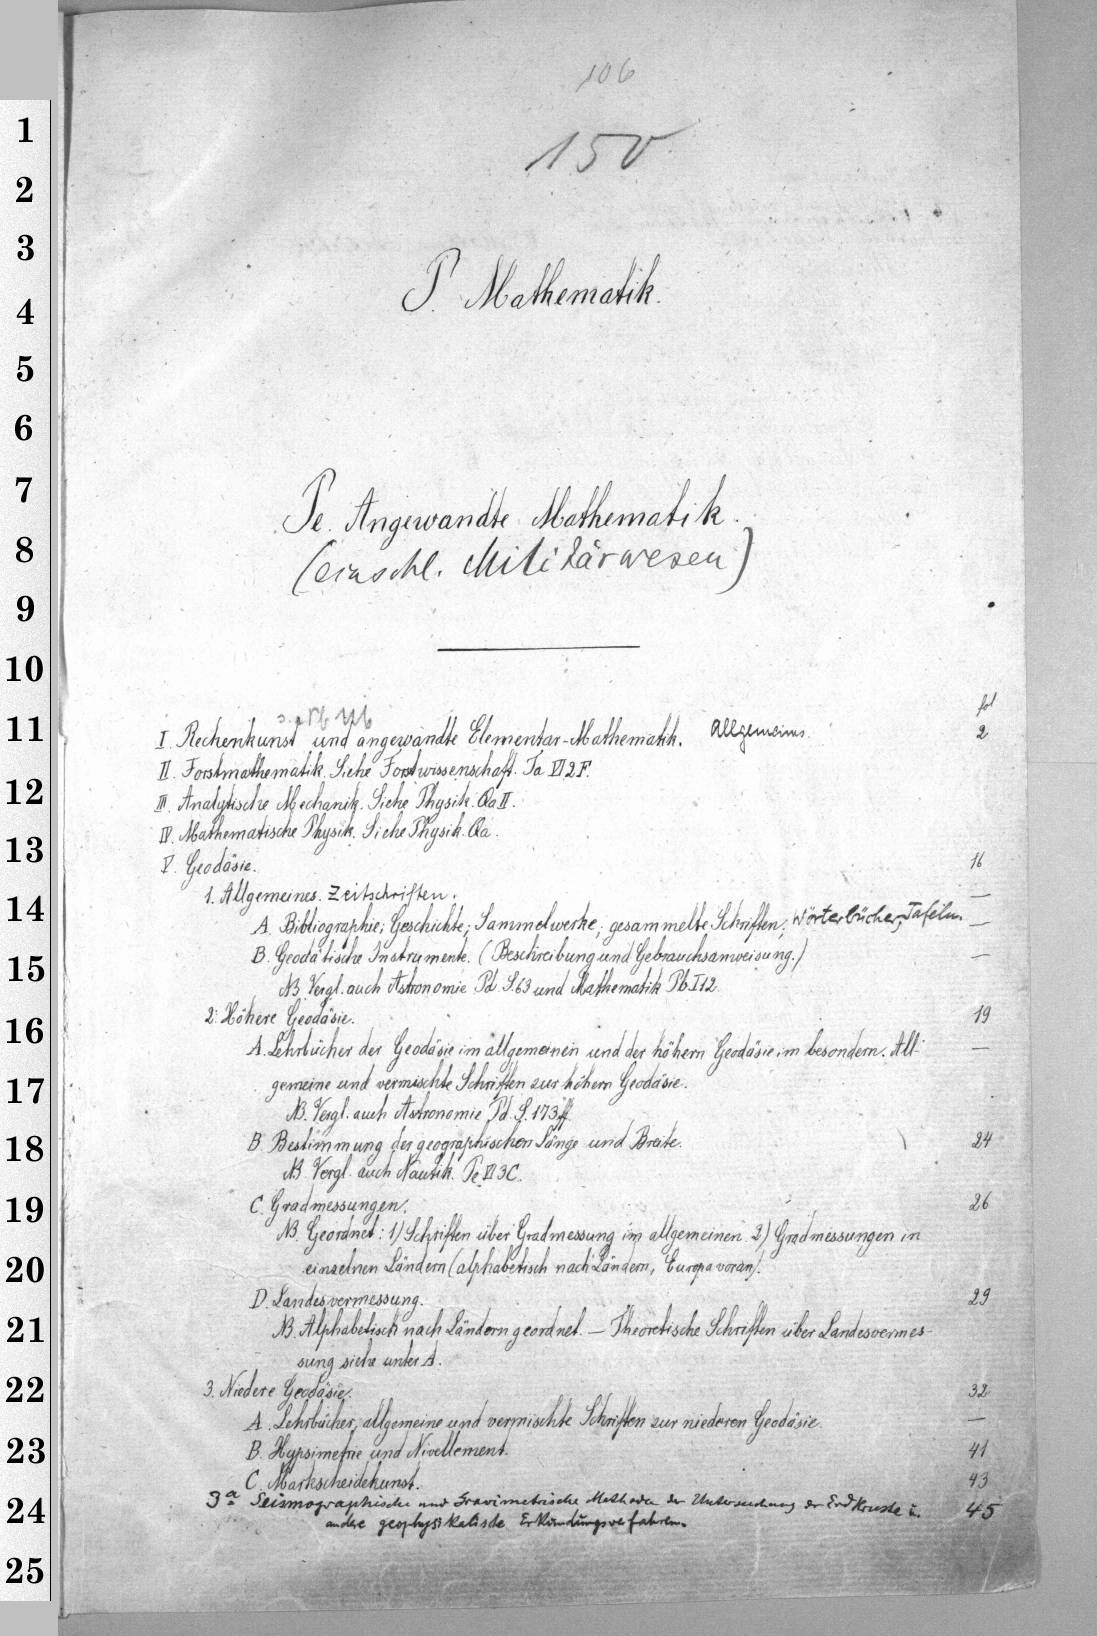 106
150
P. Mathematik.
Pe. Angewandte Mathematik.
(einschl. Militärwesen)
fol
I. Rechenkunst und angewandte Elementar-Mathematik. Allgemeines. 2
II. Forstmathematik. Siehe Forstwissenschaft. Ta VI 2 F.
III. Analytische Mechanik. Siehe Physik. Qa II.
IV. Mathematische Physik. Siehe Physik. Qa.
V. Geodäsie. 16
1. Allgemeines. Zeitschriften. —
A. Bibliographie; Geschichte; Sammelwerke; gesammelte Schriften; Wörterbücher; Tafeln. —
B. Geodätische Instrumente. (Beschreibung und Gebrauchsanweisung.) —
NB. Vergl. auch Astronomie Pd S. 63 und Mathematik Pb I 12.
2. Höhere Geodäsie. 19
A. Lehrbücher der Geodäsie im allgemeinen und der höhern Geodäsie im besondern. All- —
gemeine und vermischte Schriften zur höhern Geodäsie.
NB. Vergl. auch Astronomie Pd. S. 173 ff
B. Bestimmung der geographischen Länge und Breite. 24
NB. Vergl. auch Nautik. Pe VI 3 C.
C. Gradmessungen. 26
NB. Geordnet: 1) Schriften über Gradmessung im allgemeinen. 2) Gradmessungen in
einzelnen Ländern (alphabetisch nach Ländern, Europa voran).
D. Landesvermessung. 29
NB. Alphabetisch nach Ländern geordnet. — Theoretische Schriften über Landesvermes-
sung siehe unter A.
3. Niedere Geodäsie. 32
A. Lehrbücher, allgemeine und vermischte Schriften zur niederen Geodäsie. —
B. Hypsimetrie und Nivellement. 41
C. Markscheidekunst. 43
3a Seismographische und Gravimetrische Methoden der Untersuchung der Erdkruste u. 45
andre geophysikalische Erkundungsverfahren.
1
2
3
4
5
6
7
8
9
10
11
12
13
14
15
16
17
18
19
20
21
22
23
24
25